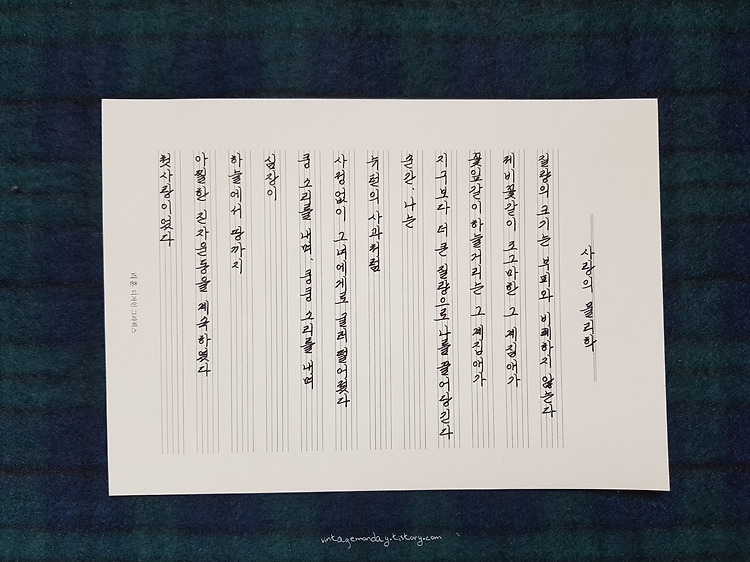 사랑의 물리학
질량의 크기는 부피와 비례하지 않는다
제비꽃같이 조그마한 그 계집애가
꽃잎같이 하늘거리는 그 계집애가
지구보다 더 큰 질량으로 나를 끌어당긴다
순간, 나는
뉴턴의 사과처럼
사정없이 그녀에게로 굴러 떨어졌다
쿵 소리를 내며, 쿵쿵 소리를 내며
심장이
하늘에서 땅까지
아찔한 진자운동을 계속하였다
첫사랑이었다
디자인 그라픽스
vintagemonday.tistory.com